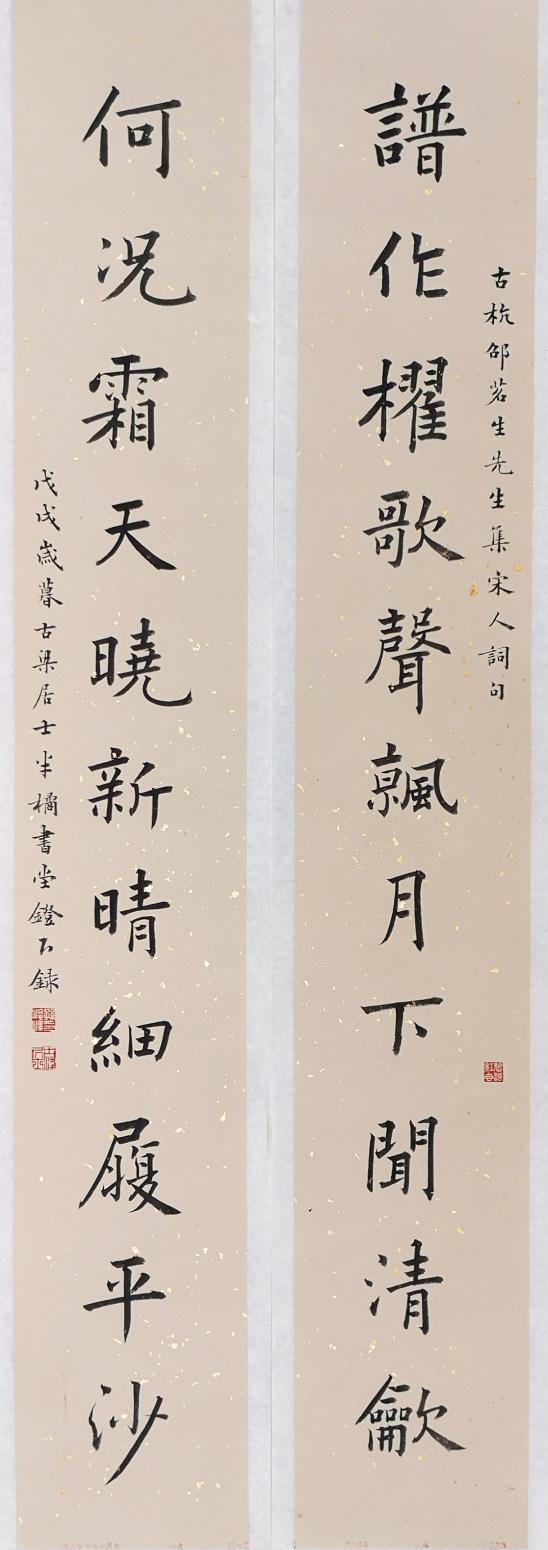 古杭邵茗生先生集宋人詞句
譜作櫂歌聲月下聞清龡
何况霜天曉新晴細履平沙
戊戌歲暮古梁居士半橘書堂鐙下録